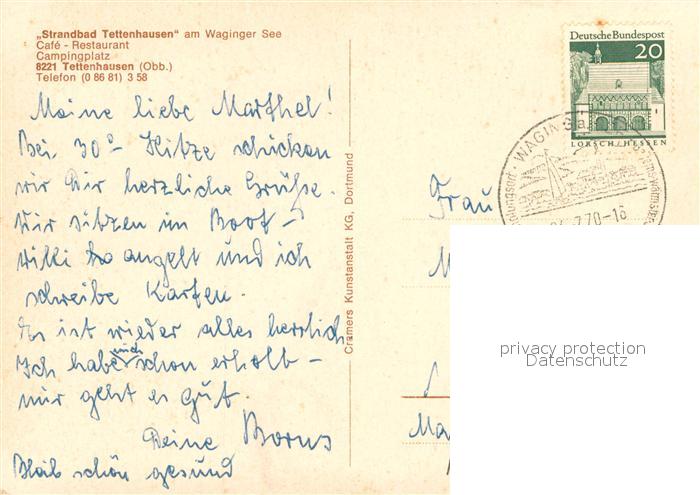 „Strandbad Tettenhausen" am Waginger See
Café - Restaurant
Campingplatz
8221 Tettenhausen (Obb.)
Telefon (0 86 81) 3 58
Meine liebe Marthel!
Bei 30° Hitze schicken
wir Dir herzliche Grüße.
Wir sitzen im Boot –
Willi angelt und ich
schreibe Karten.
Es ist wieder alles herrlich.
Ich habe mich schon erholt –
mir geht es gut.
Deine
Bleib schön gesund
Cramers Kunstanstalt KG, Dortmund
Deutsche Bundespost
20
LORSCH/HESSEN
WAGING a.
7.70-16
Frau
Ma
privacy protection
Datenschutz